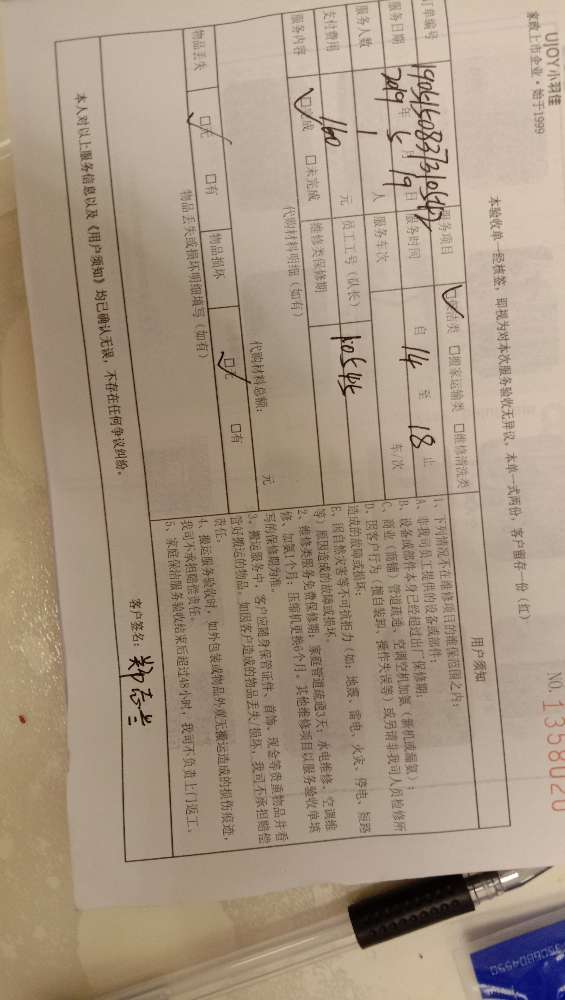 UJOY小羽佳
家政上市企业·始于1999
NO. 1358020
本验收单一经核签,即视为对本次服务验收无异议。本单一式两份,客户留存一份(红)
订单编号
服务项目 ☑保洁类 □搬家运输类 □维修清洗类
服务日期 2019年5月19日 服务时间 自14至18止
服务人数 1人 服务车次 车/次
支付费用 160元 员工工号(队长)
服务内容 ☑完成 □未完成 维修类保修期
代购材料明细(如有)
代购材料总额: 元
物品丢失 ☑无 □有 物品损坏 ☑无 □有
物品丢失或损坏明细填写(如有)
用户须知
1、下列情况不在维修项目的维保范围之内:
A、非我司员工提供的设备或部件;
B、设备或部件本身已经超过出厂保修期;
C、商业(商铺)管道疏通、空调空机加氨(新机或漏氨);
D、因客户行为(擅自装卸、操作失误等)或另请非我司人员检修所
造成的故障或损坏;
E、因自然灾害等不可抗拒力(如:地震、雷电、火灾、停电、短路
等)原因造成的故障或损坏。
2、维修类服务免费保修期:家庭管道疏通3天;水电维修、空调维
修、加氨1个月;压缩机更换6个月。其他维修项目以服务验收单填
写的保修期为准。
3、搬运服务中,客户应随身保管证件、首饰、现金等贵重物品并看
管好搬运的物品。如因客户造成的物品丢失/损坏,我司不承担赔偿
责任。
4、搬运服务验收时,如外包装或物品外观无搬运造成的损伤痕迹,
我司不承担赔偿责任。
5、家庭保洁服务验收结束后超过48小时,我司不负责上门返工。
本人对以上服务信息以及《用户须知》均已确认无误,不存在任何争议纠纷。
客户签名: